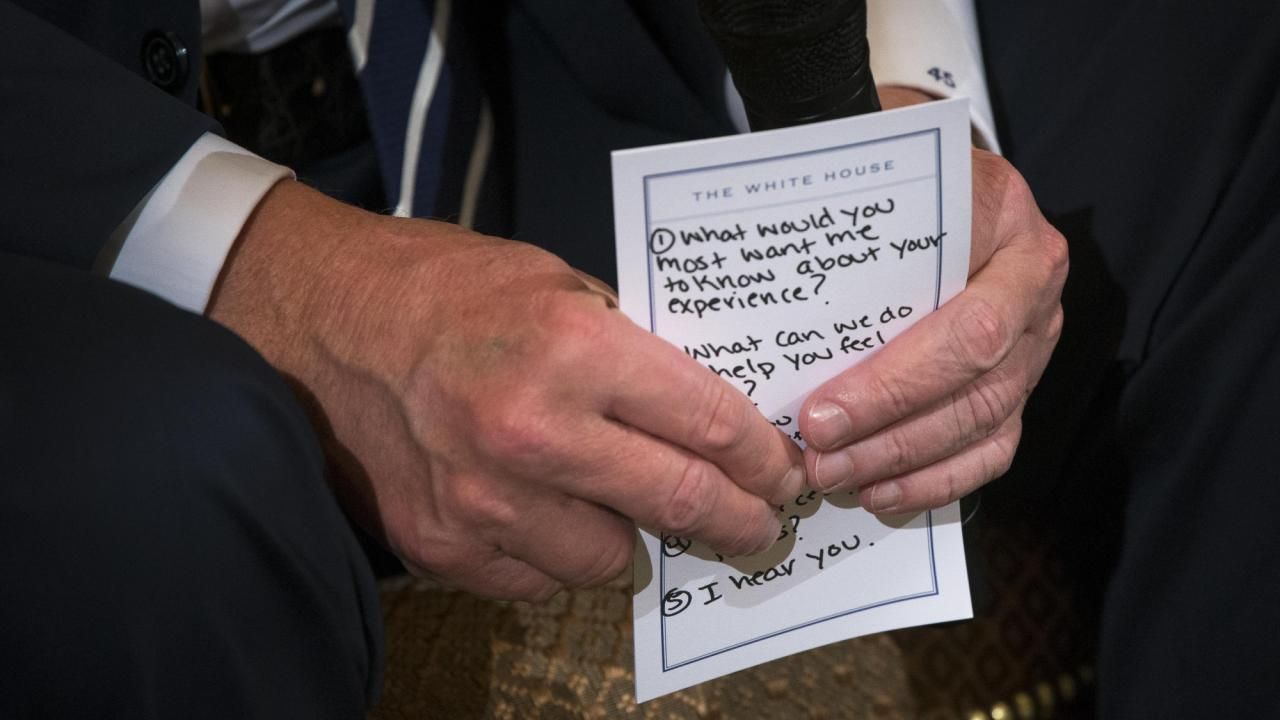 45
THE WHITE HOUSE
① What would you
most want me
to know about your
experience?
What can we do
help you feel
?
④ ?
⑤ I hear you.